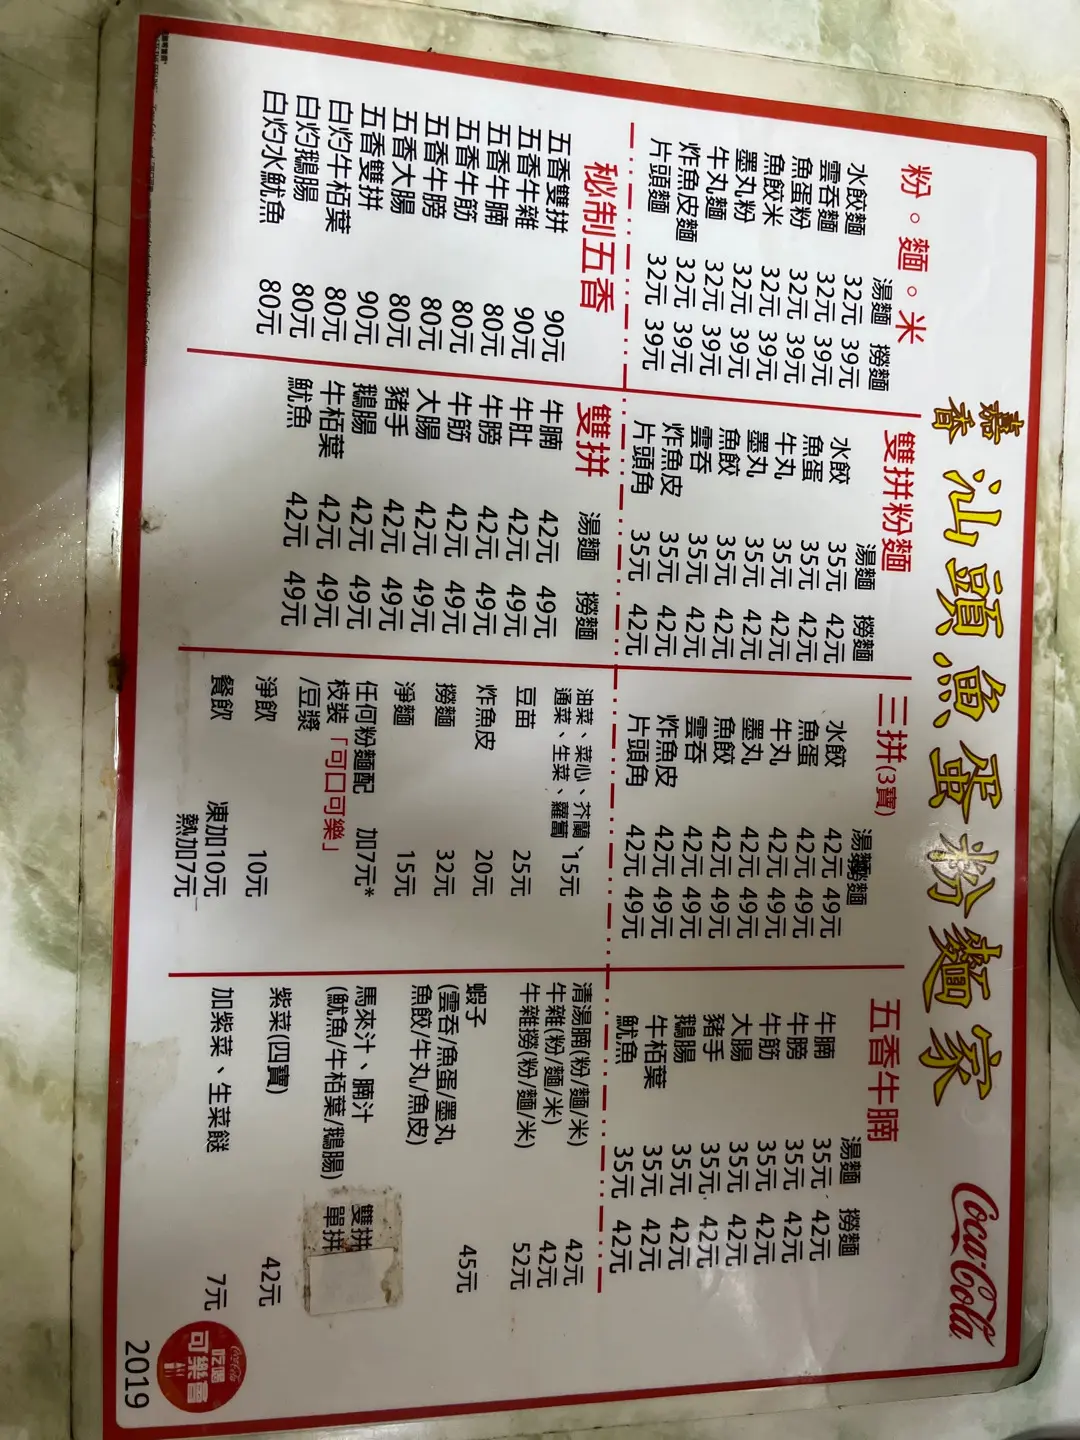 嘉香 汕頭魚蛋粉麵家
Coca-Cola
粉。麵。米
湯麵 撈麵
水餃麵 32元 39元
雲吞麵 32元 39元
魚蛋粉 32元 39元
魚餃米 32元 39元
墨丸粉 32元 39元
牛丸麵 32元 39元
炸魚皮麵 32元 39元
片頭麵 32元 39元
雙拼粉麵
湯麵 撈麵
水餃 35元 42元
魚蛋 35元 42元
牛丸 35元 42元
墨丸 35元 42元
魚餃 35元 42元
雲吞 35元 42元
炸魚皮 35元 42元
片頭角 35元 42元
三拼(3寶)
湯麵 撈麵
水餃 42元 49元
魚蛋 42元 49元
牛丸 42元 49元
墨丸 42元 49元
魚餃 42元 49元
雲吞 42元 49元
炸魚皮 42元 49元
片頭角 42元 49元
五香牛腩
湯麵 撈麵
牛腩 35元 42元
牛膀 35元 42元
牛筋 35元 42元
大腸 35元 42元
豬手 35元 42元
鵝腸 35元 42元
牛栢葉 35元 42元
魷魚 35元 42元
秘制五香
五香雙拼 90元
五香牛雜 90元
五香牛腩 80元
五香牛筋 80元
五香牛膀 80元
五香大腸 80元
五香雙拼 90元
白灼牛栢葉 80元
白灼鵝腸 80元
白灼水魷魚 80元
雙拼
湯麵 撈麵
牛腩 42元 49元
牛肚 42元 49元
牛膀 42元 49元
牛筋 42元 49元
大腸 42元 49元
豬手 42元 49元
鵝腸 42元 49元
牛栢葉 42元 49元
魷魚 42元 49元
油菜、菜心、芥蘭、
通菜、生菜、蘿蔔 15元
豆苗 25元
炸魚皮 20元
撈麵 32元
淨麵 15元
任何粉麵配 加7元*
枝裝「可口可樂」
/豆漿
淨飲 10元
餐飲 凍加10元
熱加7元
清湯腩(粉/麵/米) 42元
牛雜(粉/麵/米) 42元
牛雜撈(粉/麵/米) 52元
蝦子
(雲吞/魚蛋/墨丸 45元
魚餃/牛丸/魚皮)
馬來汁、腩汁 雙拼
(魷魚/牛栢葉/鵝腸) 單拼
紫菜(四寶) 42元
加紫菜、生菜餸 7元
Coca-Cola
吃喝
可樂會
2019